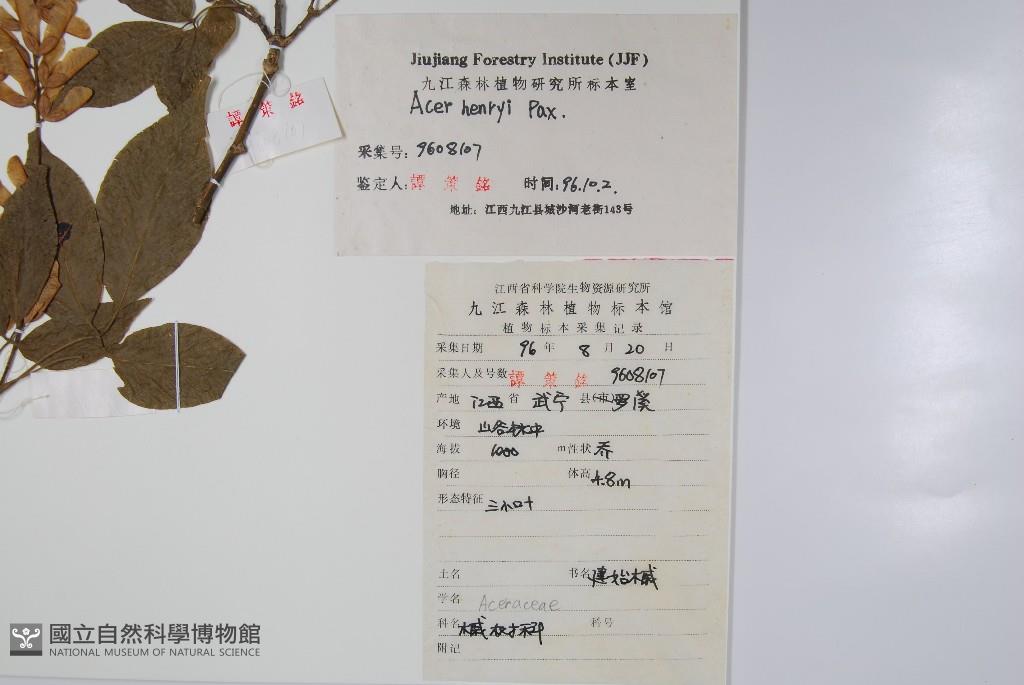 Jiujiang Forestry Institute (JJF)
九江森林植物研究所标本室
Acer henryi Pax.
采集号: 9608107
鉴定人: 譚策銘 时间: 96.10.2.
地址: 江西九江县城沙河老街143号
譚策銘
江西省科学院生物资源研究所
九江森林植物标本馆
植物标本采集记录
采集日期 96 年 8 月 20 日
采集人及号数 譚策銘 9608107
产地 江西 省 武宁 县(市) 罗溪
环境 山谷林中
海拔 1000 m 性状 乔
胸径 体高 4.8m
形态特征 三小叶
土名 书名 建始槭
学名 Aceraceae
科名 槭树科 科号
附记
國立自然科學博物館
NATIONAL MUSEUM OF NATURAL SCIENCE